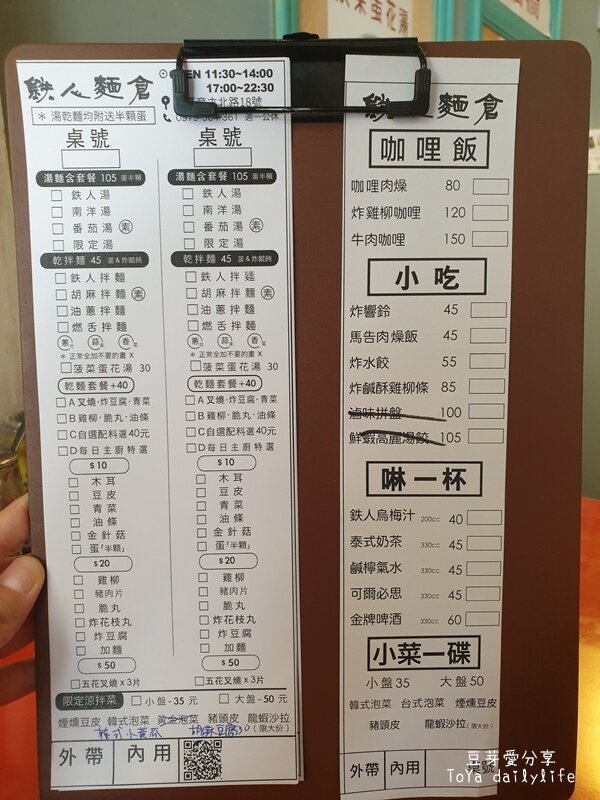 鉄人麵倉
OPEN 11:30~14:00
17:00~22:30
北路18號
週一公休
＊湯乾麵均附送半顆蛋
桌號 桌號
湯麵含套餐 105 蛋半顆 湯麵含套餐 105 蛋半顆
鉄人湯 鉄人湯
南洋湯 南洋湯
番茄湯 素 番茄湯 素
限定湯 限定湯
乾拌麵 45 蛋&炸餛飩 乾拌麵 45 蛋&炸餛飩
鉄人拌麵 鉄人拌麵
胡麻拌麵 素 胡麻拌麵 素
油蔥拌麵 油蔥拌麵
燃舌拌麵 燃舌拌麵
蔥花 蒜 香菜 蔥花 蒜 香菜
＊正常全加不要的畫 X ＊正常全加不要的畫 X
菠菜蛋花湯 30 菠菜蛋花湯 30
乾麵套餐+40 乾麵套餐+40
A叉燒·炸豆腐·青菜 A叉燒·炸豆腐·青菜
B雞柳·脆丸·油條 B雞柳·脆丸·油條
C自選配料選40元 C自選配料選40元
D每日主廚特選 D每日主廚特選
$10 $10
木耳 木耳
豆皮 豆皮
青菜 青菜
油條 油條
金針菇 金針菇
蛋「半顆」 蛋「半顆」
$20 $20
雞柳 雞柳
豬肉片 豬肉片
脆丸 脆丸
炸花枝丸 炸花枝丸
炸豆腐 炸豆腐
加麵 加麵
$50 $50
五花叉燒 x 3片 五花叉燒 x 3片
限定涼拌菜 小盤-35元 大盤-50元
煙燻豆皮 韓式泡菜 黃金泡菜 豬頭皮 龍蝦沙拉(限大份)
韓式小黃瓜
外帶 內用
鉄人麵倉
咖哩飯
咖哩肉燥 80
炸雞柳咖哩 120
牛肉咖哩 150
小吃
炸響鈴 45
馬告肉燥飯 45
炸水餃 55
炸鹹酥雞柳條 85
滷味拼盤 100
鮮蝦高麗湯餃 105
啉一杯
鉄人烏梅汁 200cc 40
泰式奶茶 330cc 45
鹹檸氣水 330cc 45
可爾必思 330cc 45
金牌啤酒 330cc 60
小菜一碟
小盤35 大盤50
韓式泡菜 台式泡菜 煙燻豆皮
豬頭皮 龍蝦沙拉(限大份)
外帶 內用 桌號
豆芽愛分享
Tofa dailylife